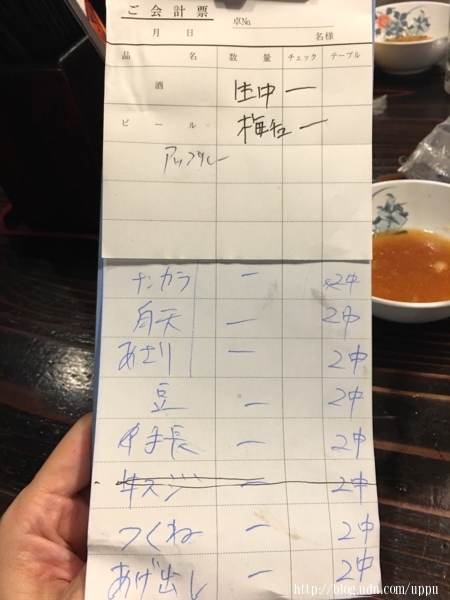 ご会計票
月 日 卓No.
名様
品 名 数 量 チェック テーブル
酒 生中 一
ビール 梅 一
ナンカラ 一 2中
月天 一 2中
あさり 一 2中
豆 一 2中
手長 一 2中
牛スジ 一 2中
つくね 一 2中
あげ出し 一 2中
http://blog.udn.com/uppu